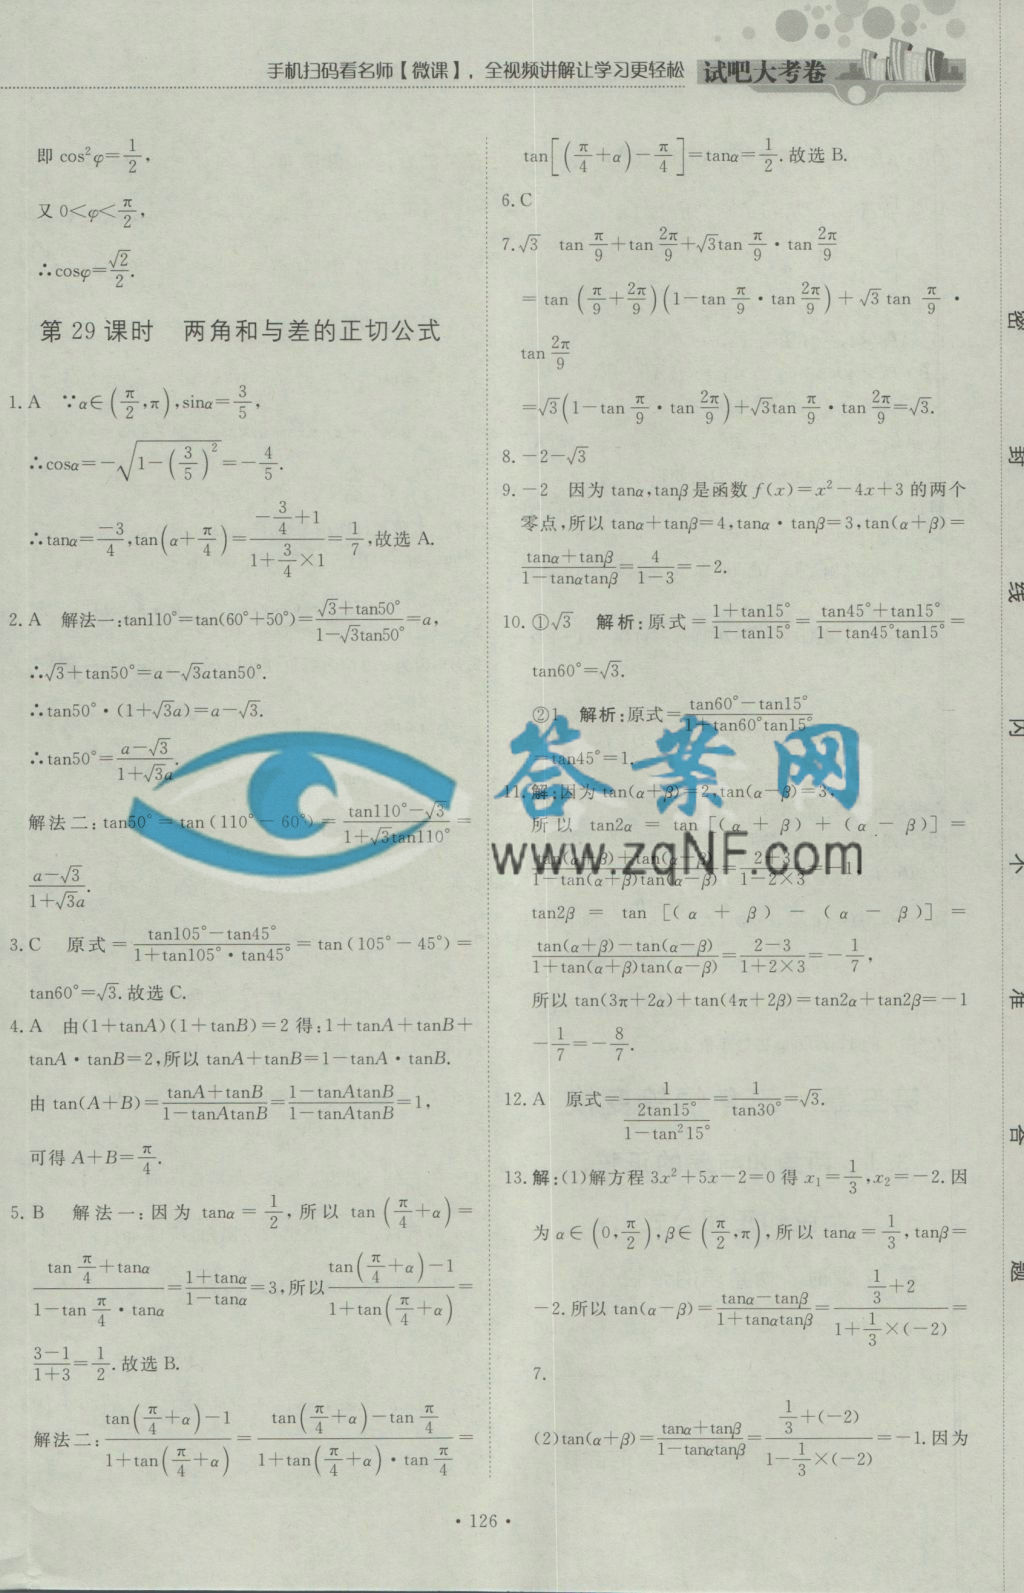 手机扫码看名师【微课】，全视频讲解让学习更轻松 试吧大考卷
即 cos²φ=1/2,
又 0<φ<π/2,
∴cosφ=√2/2.
第 29 课时 两角和与差的正切公式
1. A ∵α∈(π/2,π),sinα=3/5,
∴cosα=-√(1-(3/5)²)=-4/5.
∴tanα=-3/4,tan(α+π/4)=(-3/4+1)/(1+3/4×1)=1/7,故选 A.
2. A 解法一:tan110°=tan(60°+50°)=(√3+tan50°)/(1-√3tan50°)=a,
∴√3+tan50°=a-√3atan50°.
∴tan50°·(1+√3a)=a-√3.
∴tan50°=(a-√3)/(1+√3a).
解法二:tan50°=tan(110°-60°)=(tan110°-√3)/(1+√3tan110°)=
(a-√3)/(1+√3a).
3. C 原式=(tan105°-tan45°)/(1+tan105°·tan45°)=tan(105°-45°)=
tan60°=√3.故选 C.
4. A 由(1+tanA)(1+tanB)=2 得:1+tanA+tanB+
tanA·tanB=2,所以 tanA+tanB=1-tanA·tanB.
由 tan(A+B)=(tanA+tanB)/(1-tanAtanB)=(1-tanAtanB)/(1-tanAtanB)=1,
可得 A+B=π/4.
5. B 解法一:因为 tanα=1/2,所以 tan(π/4+α)=
(tanπ/4+tanα)/(1-tanπ/4·tanα)=(1+tanα)/(1-tanα)=3,所以(tan(π/4+α)-1)/(1+tan(π/4+α))=
(3-1)/(1+3)=1/2.故选 B.
解法二:(tan(π/4+α)-1)/(1+tan(π/4+α))=(tan(π/4+α)-tanπ/4)/(1+tan(π/4+α)·tanπ/4)=
tan[(π/4+α)-π/4]=tanα=1/2.故选 B.
6. C
7. √3 tanπ/9+tan2π/9+√3tanπ/9·tan2π/9
=tan(π/9+2π/9)(1-tanπ/9·tan2π/9)+√3tanπ/9·
tan2π/9
=√3(1-tanπ/9·tan2π/9)+√3tanπ/9·tan2π/9=√3.
8. -2-√3
9. -2 因为 tanα,tanβ是函数 f(x)=x²-4x+3 的两个
零点,所以 tanα+tanβ=4,tanα·tanβ=3,tan(α+β)=
(tanα+tanβ)/(1-tanαtanβ)=4/(1-3)=-2.
10. ①√3 解析:原式=(1+tan15°)/(1-tan15°)=(tan45°+tan15°)/(1-tan45°tan15°)=
tan60°=√3.
②1 解析:原式=(tan60°-tan15°)/(1+tan60°tan15°)
=tan45°=1.
11. 解:因为 tan(α+β)=2,tan(α-β)=3,
所以 tan2α=tan[(α+β)+(α-β)]=
(tan(α+β)+tan(α-β))/(1-tan(α+β)tan(α-β))=(2+3)/(1-2×3)=-1,
tan2β=tan[(α+β)-(α-β)]=
(tan(α+β)-tan(α-β))/(1+tan(α+β)tan(α-β))=(2-3)/(1+2×3)=-1/7,
所以 tan(3π+2α)+tan(4π+2β)=tan2α+tan2β=-1
-1/7=-8/7.
12. A 原式=1/(2tan15°/(1-tan²15°))=1/tan30°=√3.
13. 解:(1)解方程 3x²+5x-2=0 得 x₁=1/3,x₂=-2.因
为 α∈(0,π/2),β∈(π/2,π),所以 tanα=1/3,tanβ=
-2.所以 tan(α-β)=(tanα-tanβ)/(1+tanαtanβ)=(1/3+2)/(1+1/3×(-2))=
7.
(2)tan(α+β)=(tanα+tanβ)/(1-tanαtanβ)=(1/3+(-2))/(1-1/3×(-2))=-1.因为
密
封
线
内
不
准
答
题
答案网
www.zqNF.com
· 126 ·